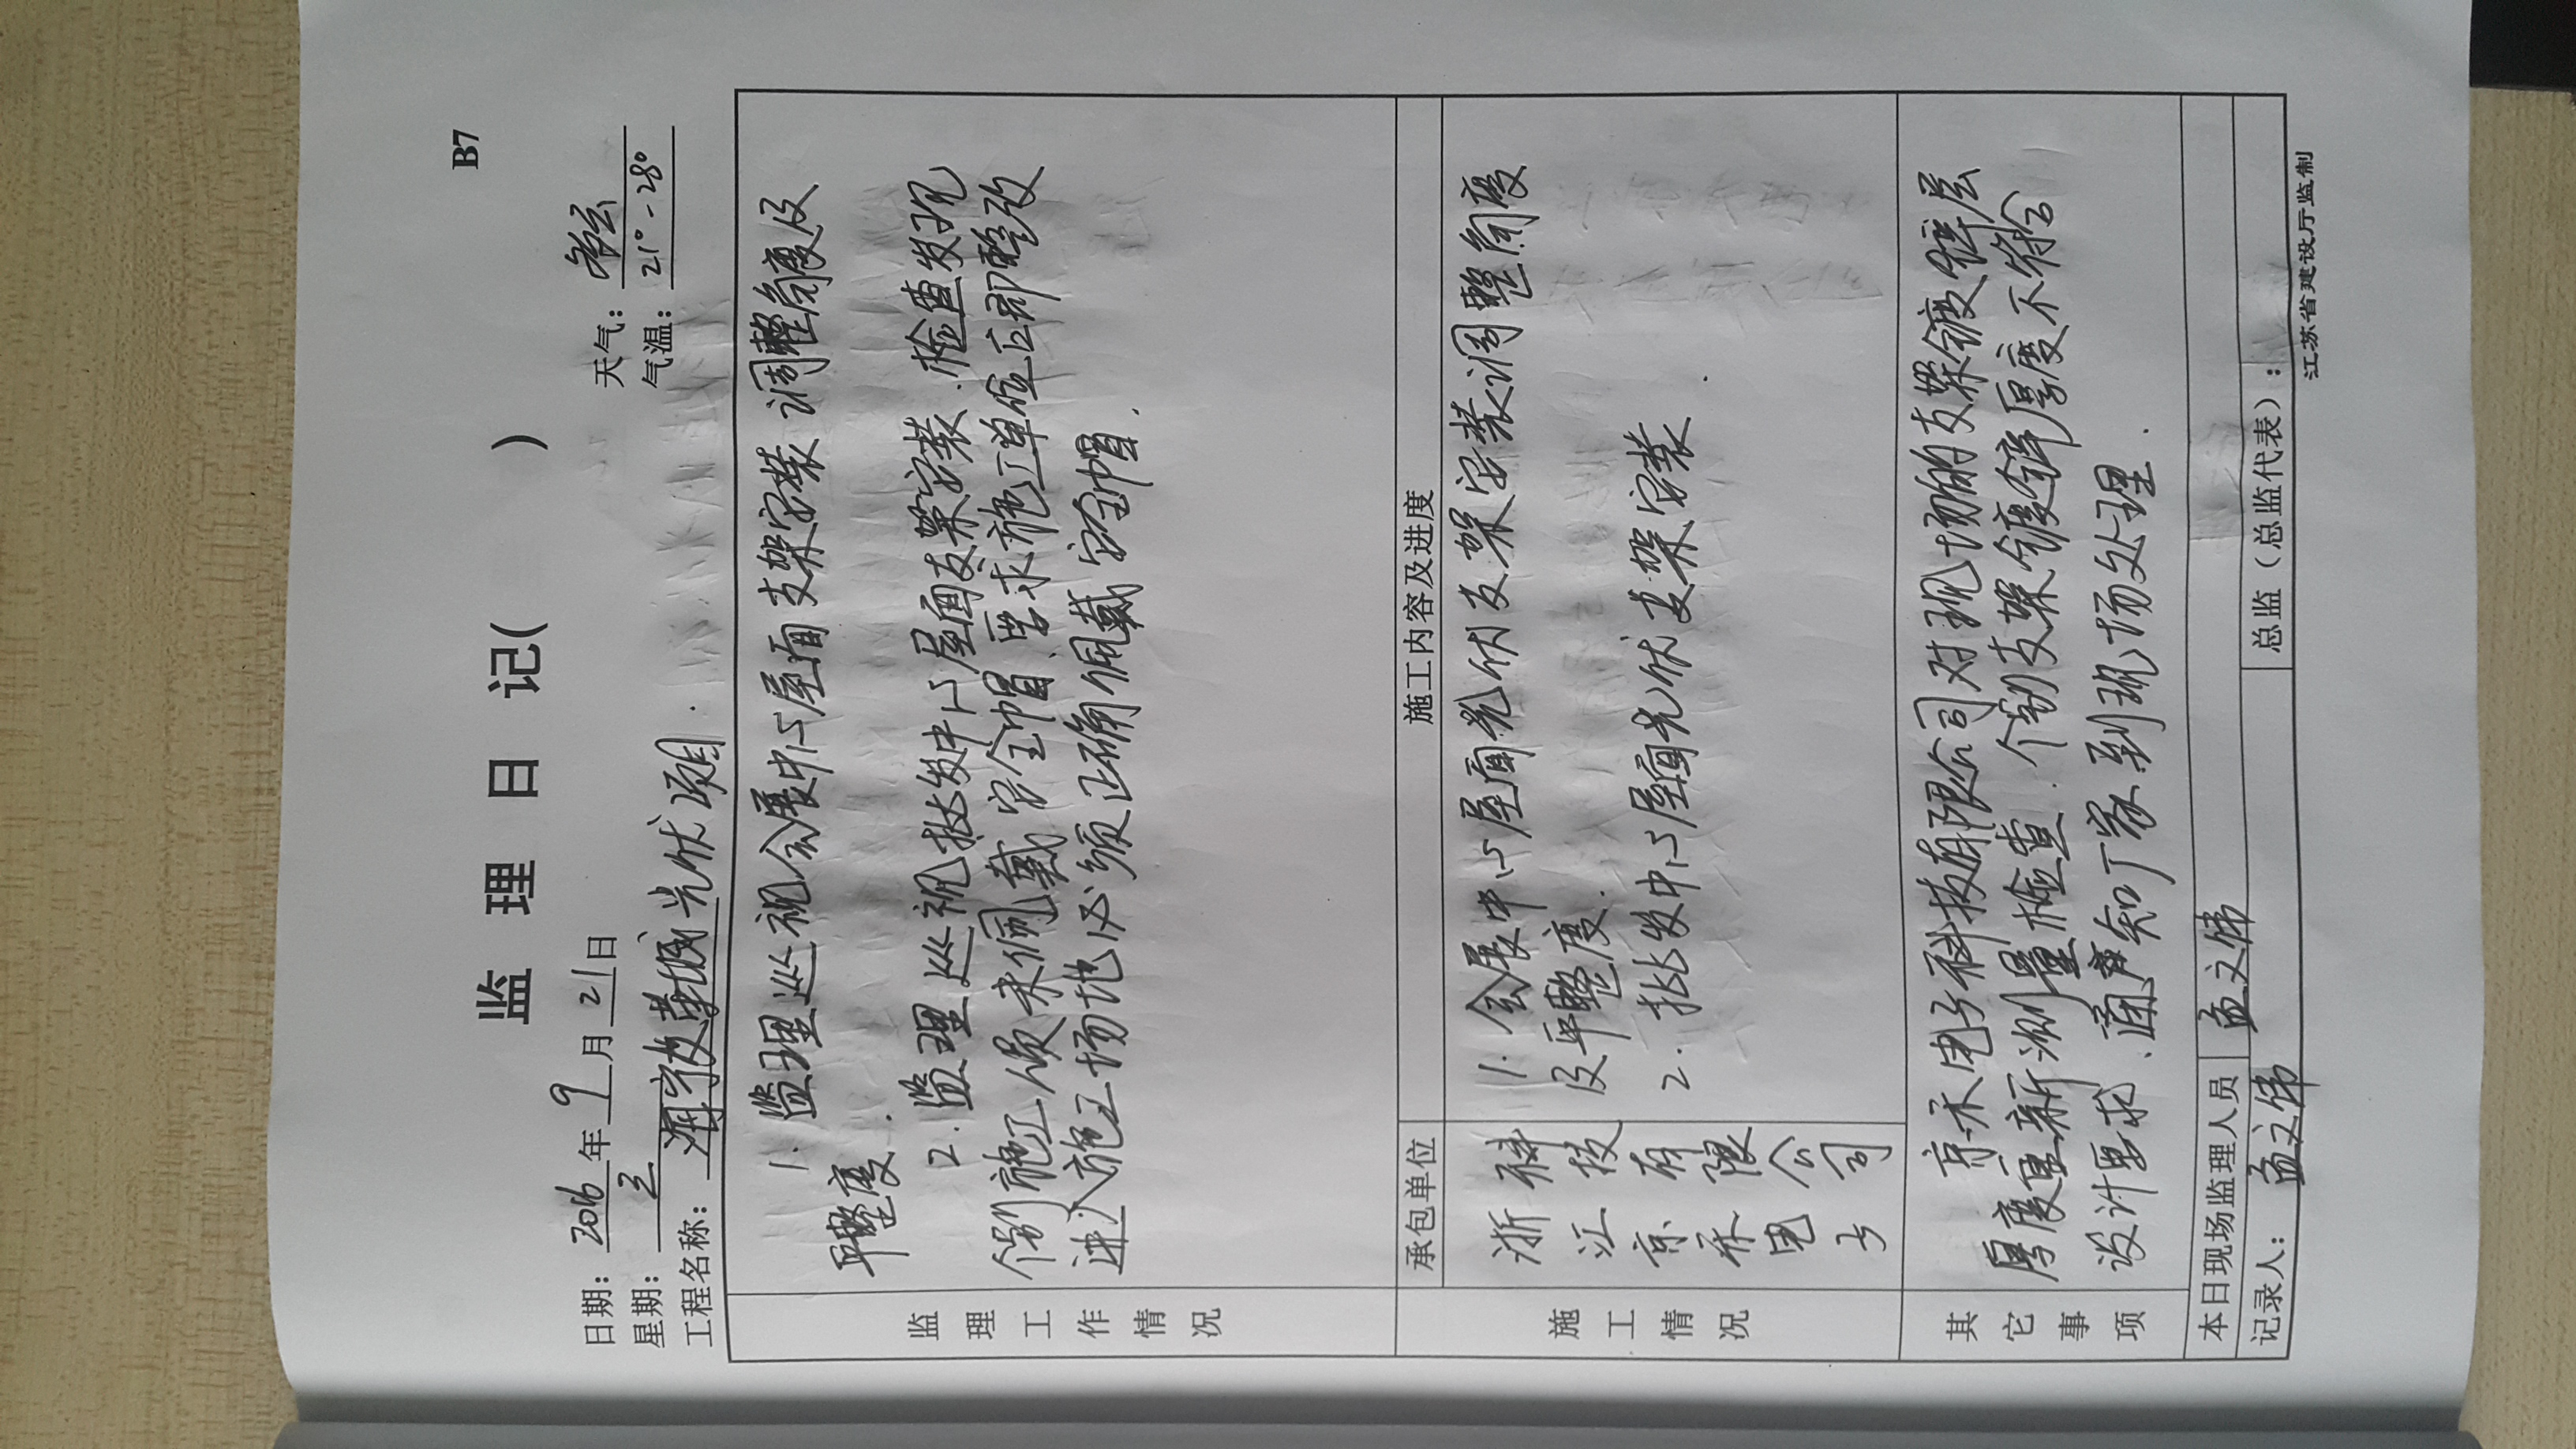 B7
监 理 日 记( )
日期: 2016 年 9 月 21 日 天气: 多云
星期: 三 气温: 21° - 28°
工程名称: 海宁皮革城光伏项目.
监理工作情况
1. 监理巡视会展中心屋面支架安装 调整角度及
平整度.
2. 监理巡视批发中心屋面支架安装. 检查发现
个别施工人员未佩戴安全帽.要求施工单位立即整改
进入施工场地必须正确佩戴安全帽.
承包单位 施工内容及进度
施工情况
浙江京禾电子科技有限公司
1. 会展中心屋面光伏支架安装调整角度
及平整度.
2. 批发中心屋面光伏支架安装
其它事项
京禾电子科技有限公司对现场的支架镀锌层
厚度重新测量检查. 个别支架镀锌厚度不符合
设计要求、通知厂家到现场处理.
本日现场监理人员 孟文伟
记录人: 孟文伟 总监(总监代表):
江苏省建设厅监制